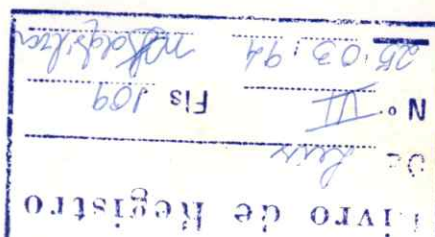 Livro de Registro
De Leis
Nº VI Fls 109
25.03.94